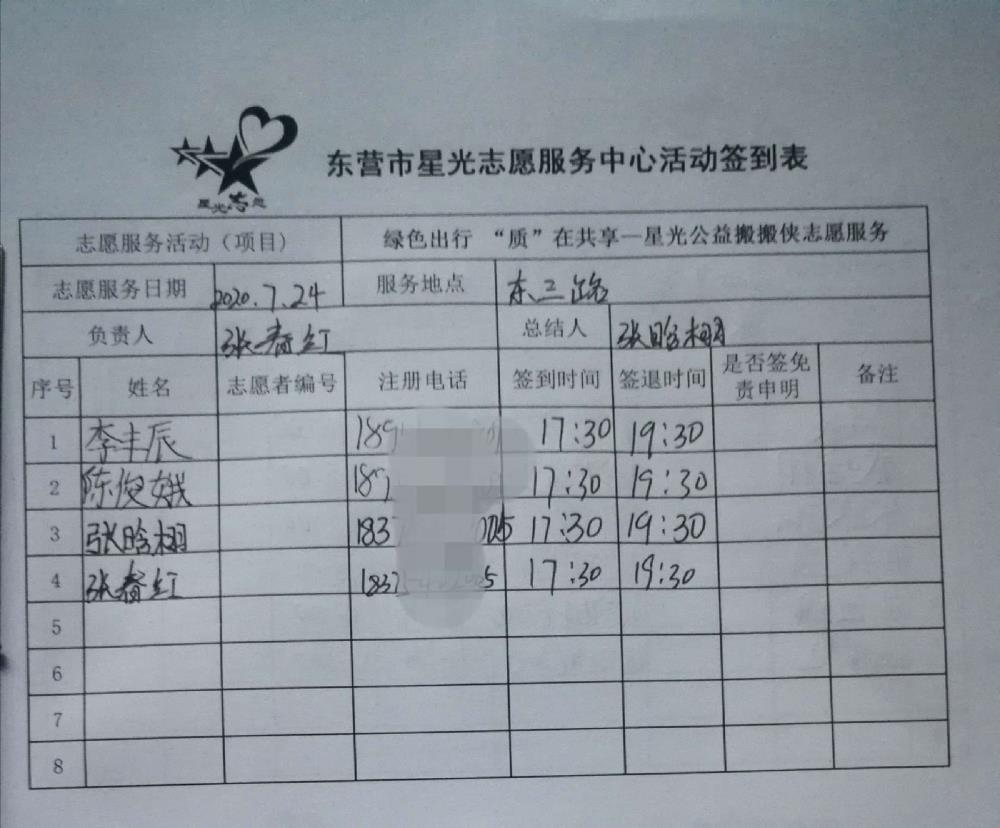 星光志愿
东营市星光志愿服务中心活动签到表
志愿服务活动（项目） 绿色出行 “质”在共享—星光公益搬搬侠志愿服务
志愿服务日期 2020.7.24 服务地点 东三路
负责人 张春红 总结人 张晗栩
序号 姓名 志愿者编号 注册电话 签到时间 签退时间 是否签免责申明 备注
1 李丰辰 189 17:30 19:30
2 陈俊娥 189 17:30 19:30
3 张晗栩 183 005 17:30 19:30
4 张春红 1837 5 17:30 19:30
5
6
7
8